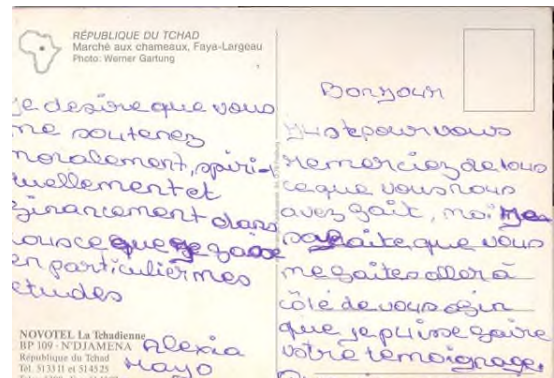 RÉPUBLIQUE DU TCHAD
Marché aux chameaux, Faya-Largeau
Photo: Werner Gartung
je desire que vous
me soutenez
moralement, spiri-
tuellement et
financement dans
tous ce que je fasse
en particulier mes
etudes
NOVOTEL La Tchadienne
BP 109 - N'DJAMENA
République du Tchad
Tél. 51 33 11 et 51 45 25
Alexia
Mayo
Bonjour
juste pour vous
remerciez de tous
ce que vous nous
avez fait, moi je
souhaite que vous
me faites aller à
côté de vous afin
que je puisse faire
votre temoignage.